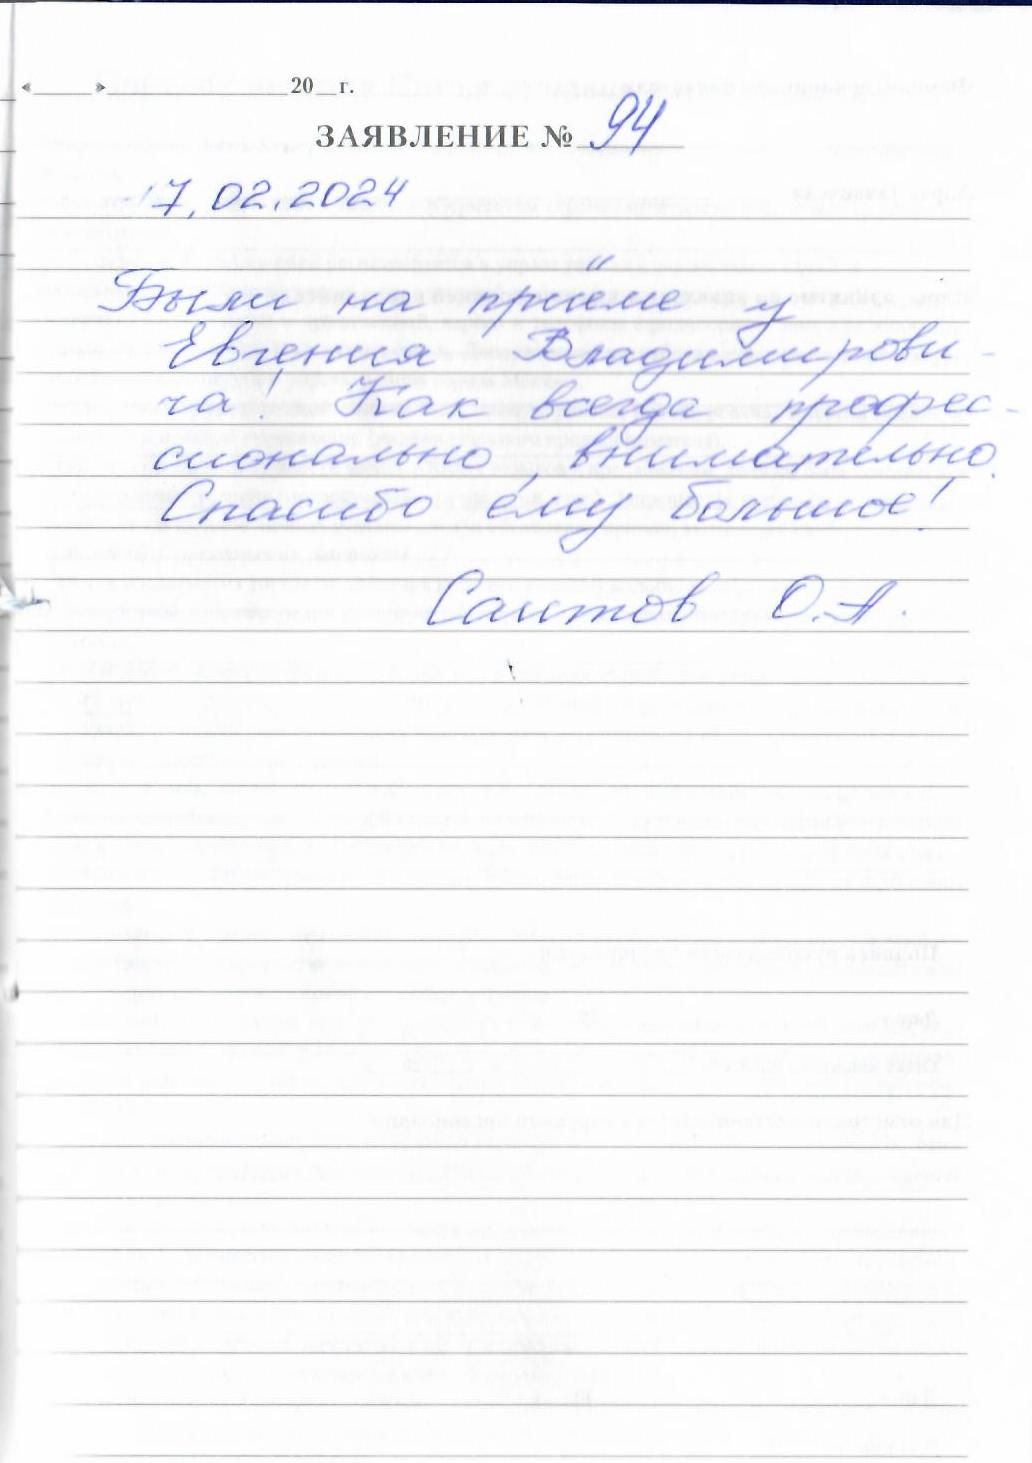 «____» ________ 20__ г.
ЗАЯВЛЕНИЕ № 94
17.02.2024
Были на приёме у
Евгения Владимирови-
ча! Как всегда профес-
сионально, внимательно.
Спасибо ему большое!
Саитов О.А.